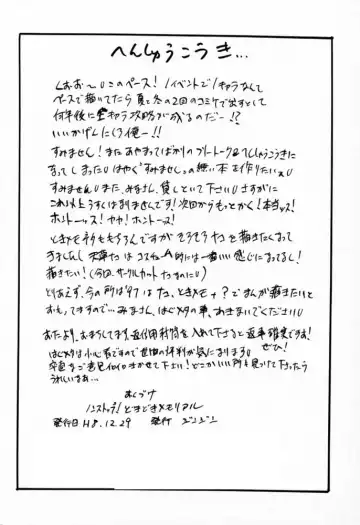 へんしゅうこうき…
くおお〜このペース!1イベントで1キャラなんて
ペースで描いてたら夏と冬の2回のコミケで出すとして
何年後に全キャラ攻略が成るのだー!?
いいかげんにしろ俺ー!!
すみません!またあやまってばかりのフリートーク&へんしゅうこうきに
なってしまったはやく「すみません」の無い本を作りたい
すみませんまた、みなさん、貸しといて下さいさすがに
これ以上うすくはなりませんです!次回からもっとかく!本当ッス!
ホントーッス!ヤヤ!ホントーッス!
ときメモネタももちろんですがそろそろを描きたくなって
きましたし
描きたい!(今回、サークルカット)
とりあえず、今の所は'97は、ときメモ+?でまんが描きたいと
おもってますので…みなさん、の事、おみまいでください
おたより、おまちしてます。返信用切手を入れて下さると返事確実ですよ!
は小心者ですので世間の評判が気になります ぜひ!
卒直なご意見 きかせて下さい!どこかいい所も見つけて下さったら
うれしいなあ…
おくづけ
ノンストップ!どきどきメモリアル
発行日 H8.12.29 発行